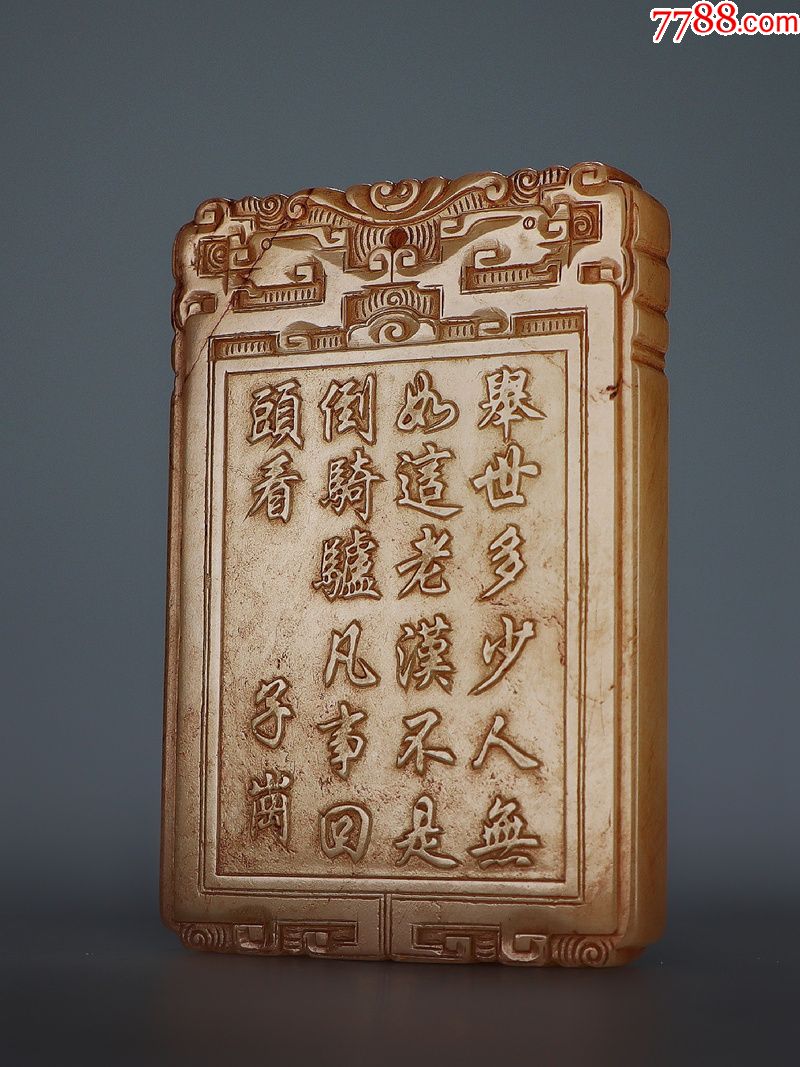 7788.com
舉世多少人無
如這老漢不是
倒騎驢凡事回
頭看
子崗